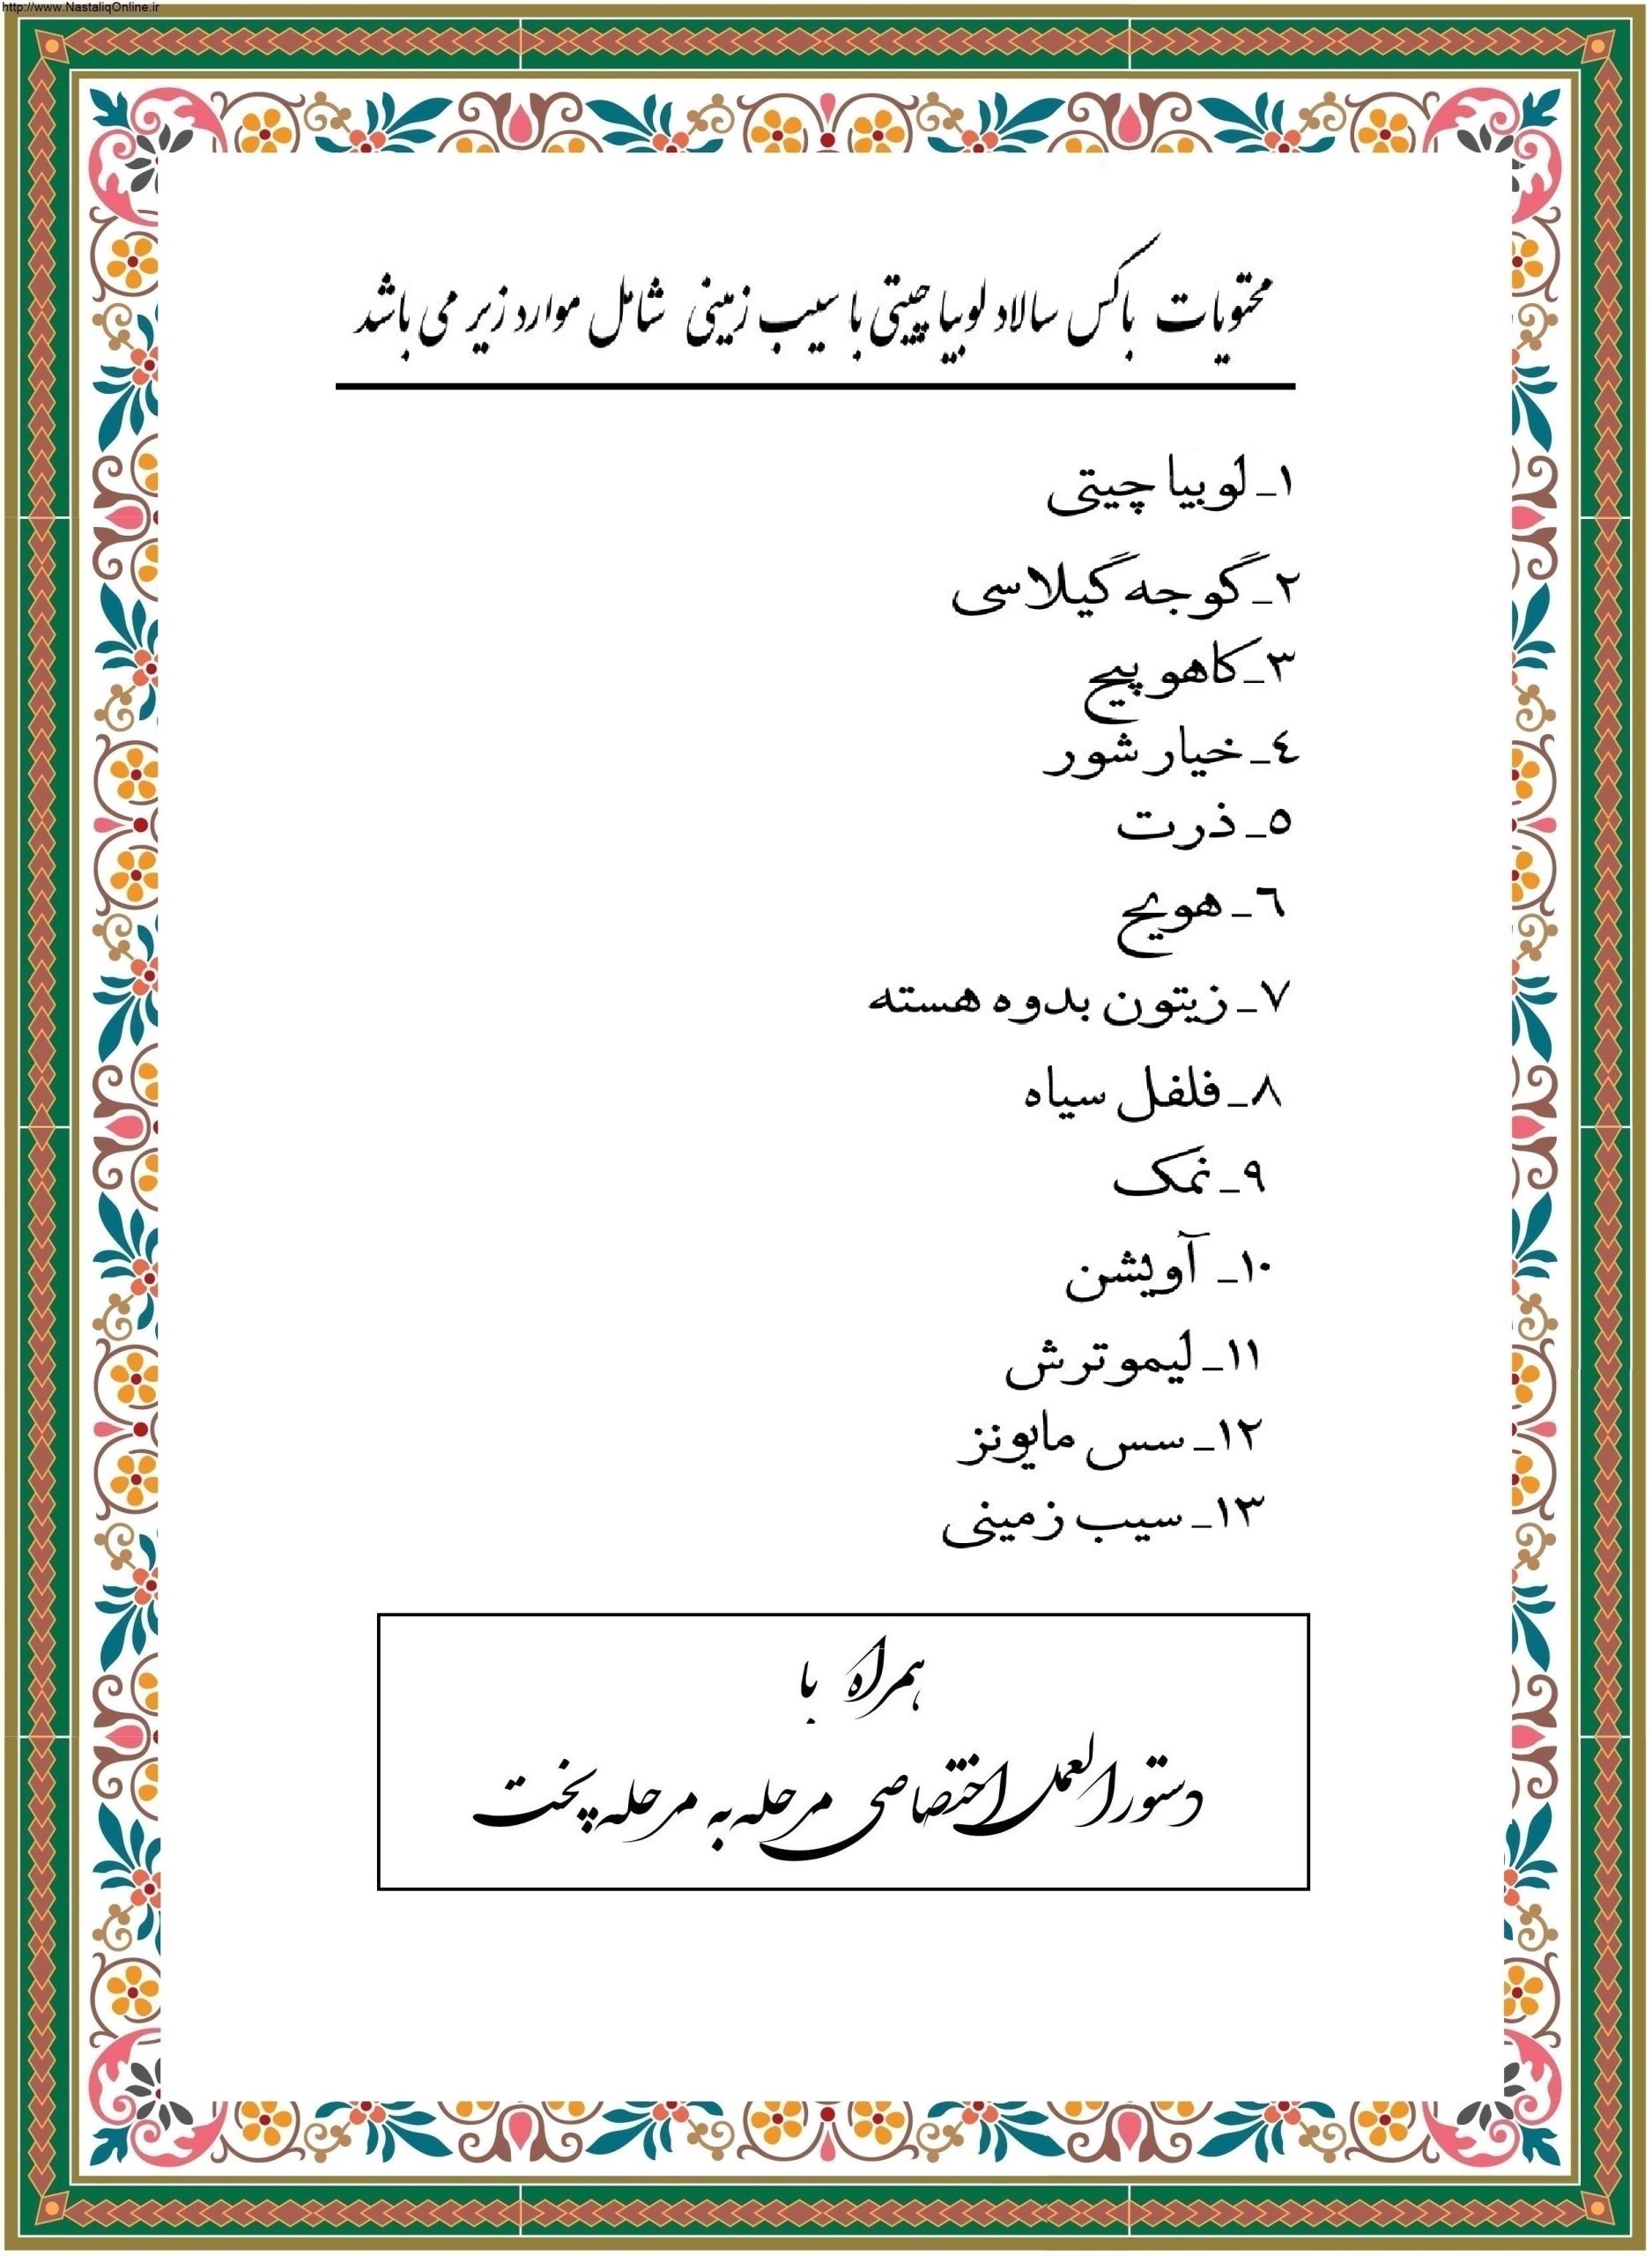 http://www.NastaliqOnline.ir
محتویات باکس سالاد لوبیا چیتی با سیب زمینی شامل موارد زیر می باشد
۱_ لوبیا چیتی
۲_ گوجه گیلاسی
۳_ کاهو پیچ
٤_ خیار شور
٥_ ذرت
٦_ هویج
۷_ زیتون بدوه هسته
۸_ فلفل سیاه
۹_ نمک
۱۰_ آویشن
۱۱_ لیمو ترش
۱۲_ سس مایونز
۱۳_ سیب زمینی
همراه با
دستورالعمل اختصاصی مرحله به مرحله پخت